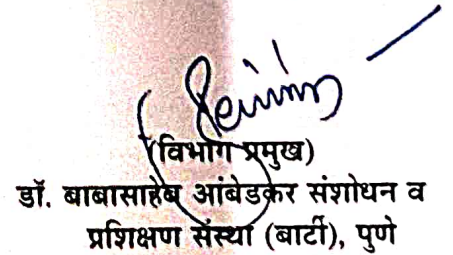 (विभाग प्रमुख)
डॉ. बाबासाहेब आंबेडकर संशोधन व
प्रशिक्षण संस्था (बार्टी), पुणे